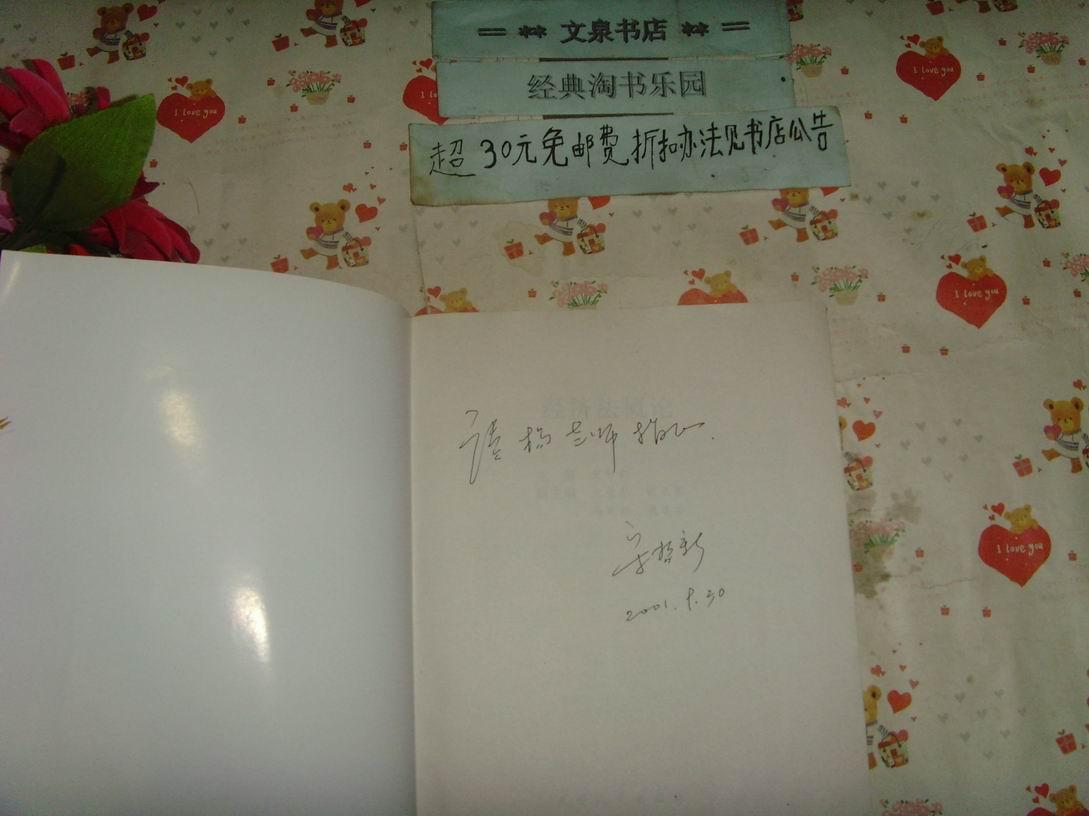 == ** 文泉书店 ** ==
经典淘书乐园
超30元免邮费折扣办法见书店公告
I love you
I love you
I love you
I love you
请杨老师指正.
2001.8.30